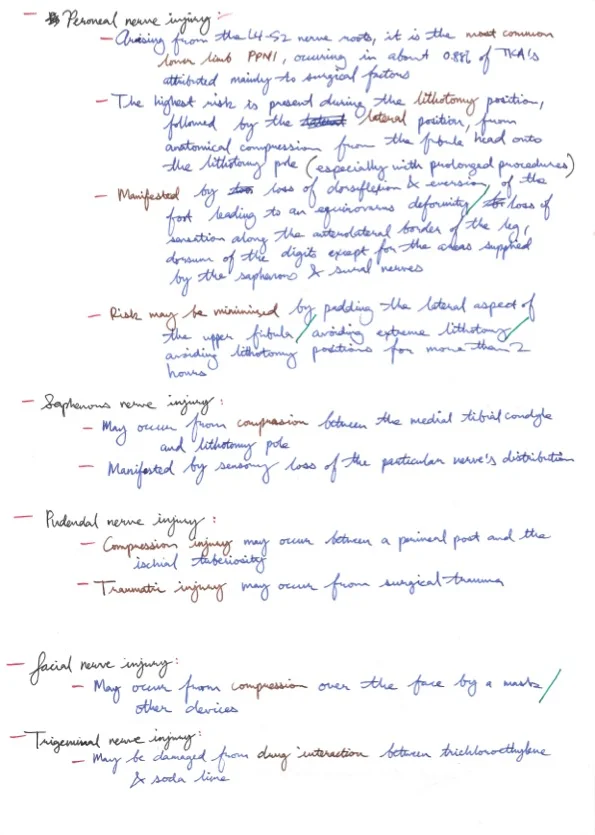 - Peroneal nerve injury:
- Arising from the L4-S2 nerve roots, it is the most common
lower limb PPNI, occuring in about 0.88% of TKA's
attributed mainly to surgical factors
- The highest risk is present during the lithotomy position,
followed by the lateral position, from
anatomical compression from the fibula head onto
the lithotomy pole (especially with prolonged procedures)
- Manifested by loss of dorsiflexion & eversion of the
foot leading to an equinovarus deformity / loss of
sensation along the anterolateral border of the leg,
dorsum of the digits except for the areas supplied
by the saphenous & sural nerves
- Risk may be minimized by padding the lateral aspect of
the upper fibula / avoiding extreme lithotomy /
avoiding lithotomy positions for more than 2
hours
- Saphenous nerve injury:
- May occur from compression between the medial tibial condyle
and lithotomy pole
- Manifested by sensory loss of the particular nerve's distribution
- Pudendal nerve injury:
- Compression injury may occur between a perineal post and the
ischial tuberiosity
- Traumatic injury may occur from surgical trauma
- Facial nerve injury:
- May occur from compression over the face by a mask /
other devices
- Trigeminal nerve injury:
- May be damaged from drug interaction between trichloroethylene
& soda lime